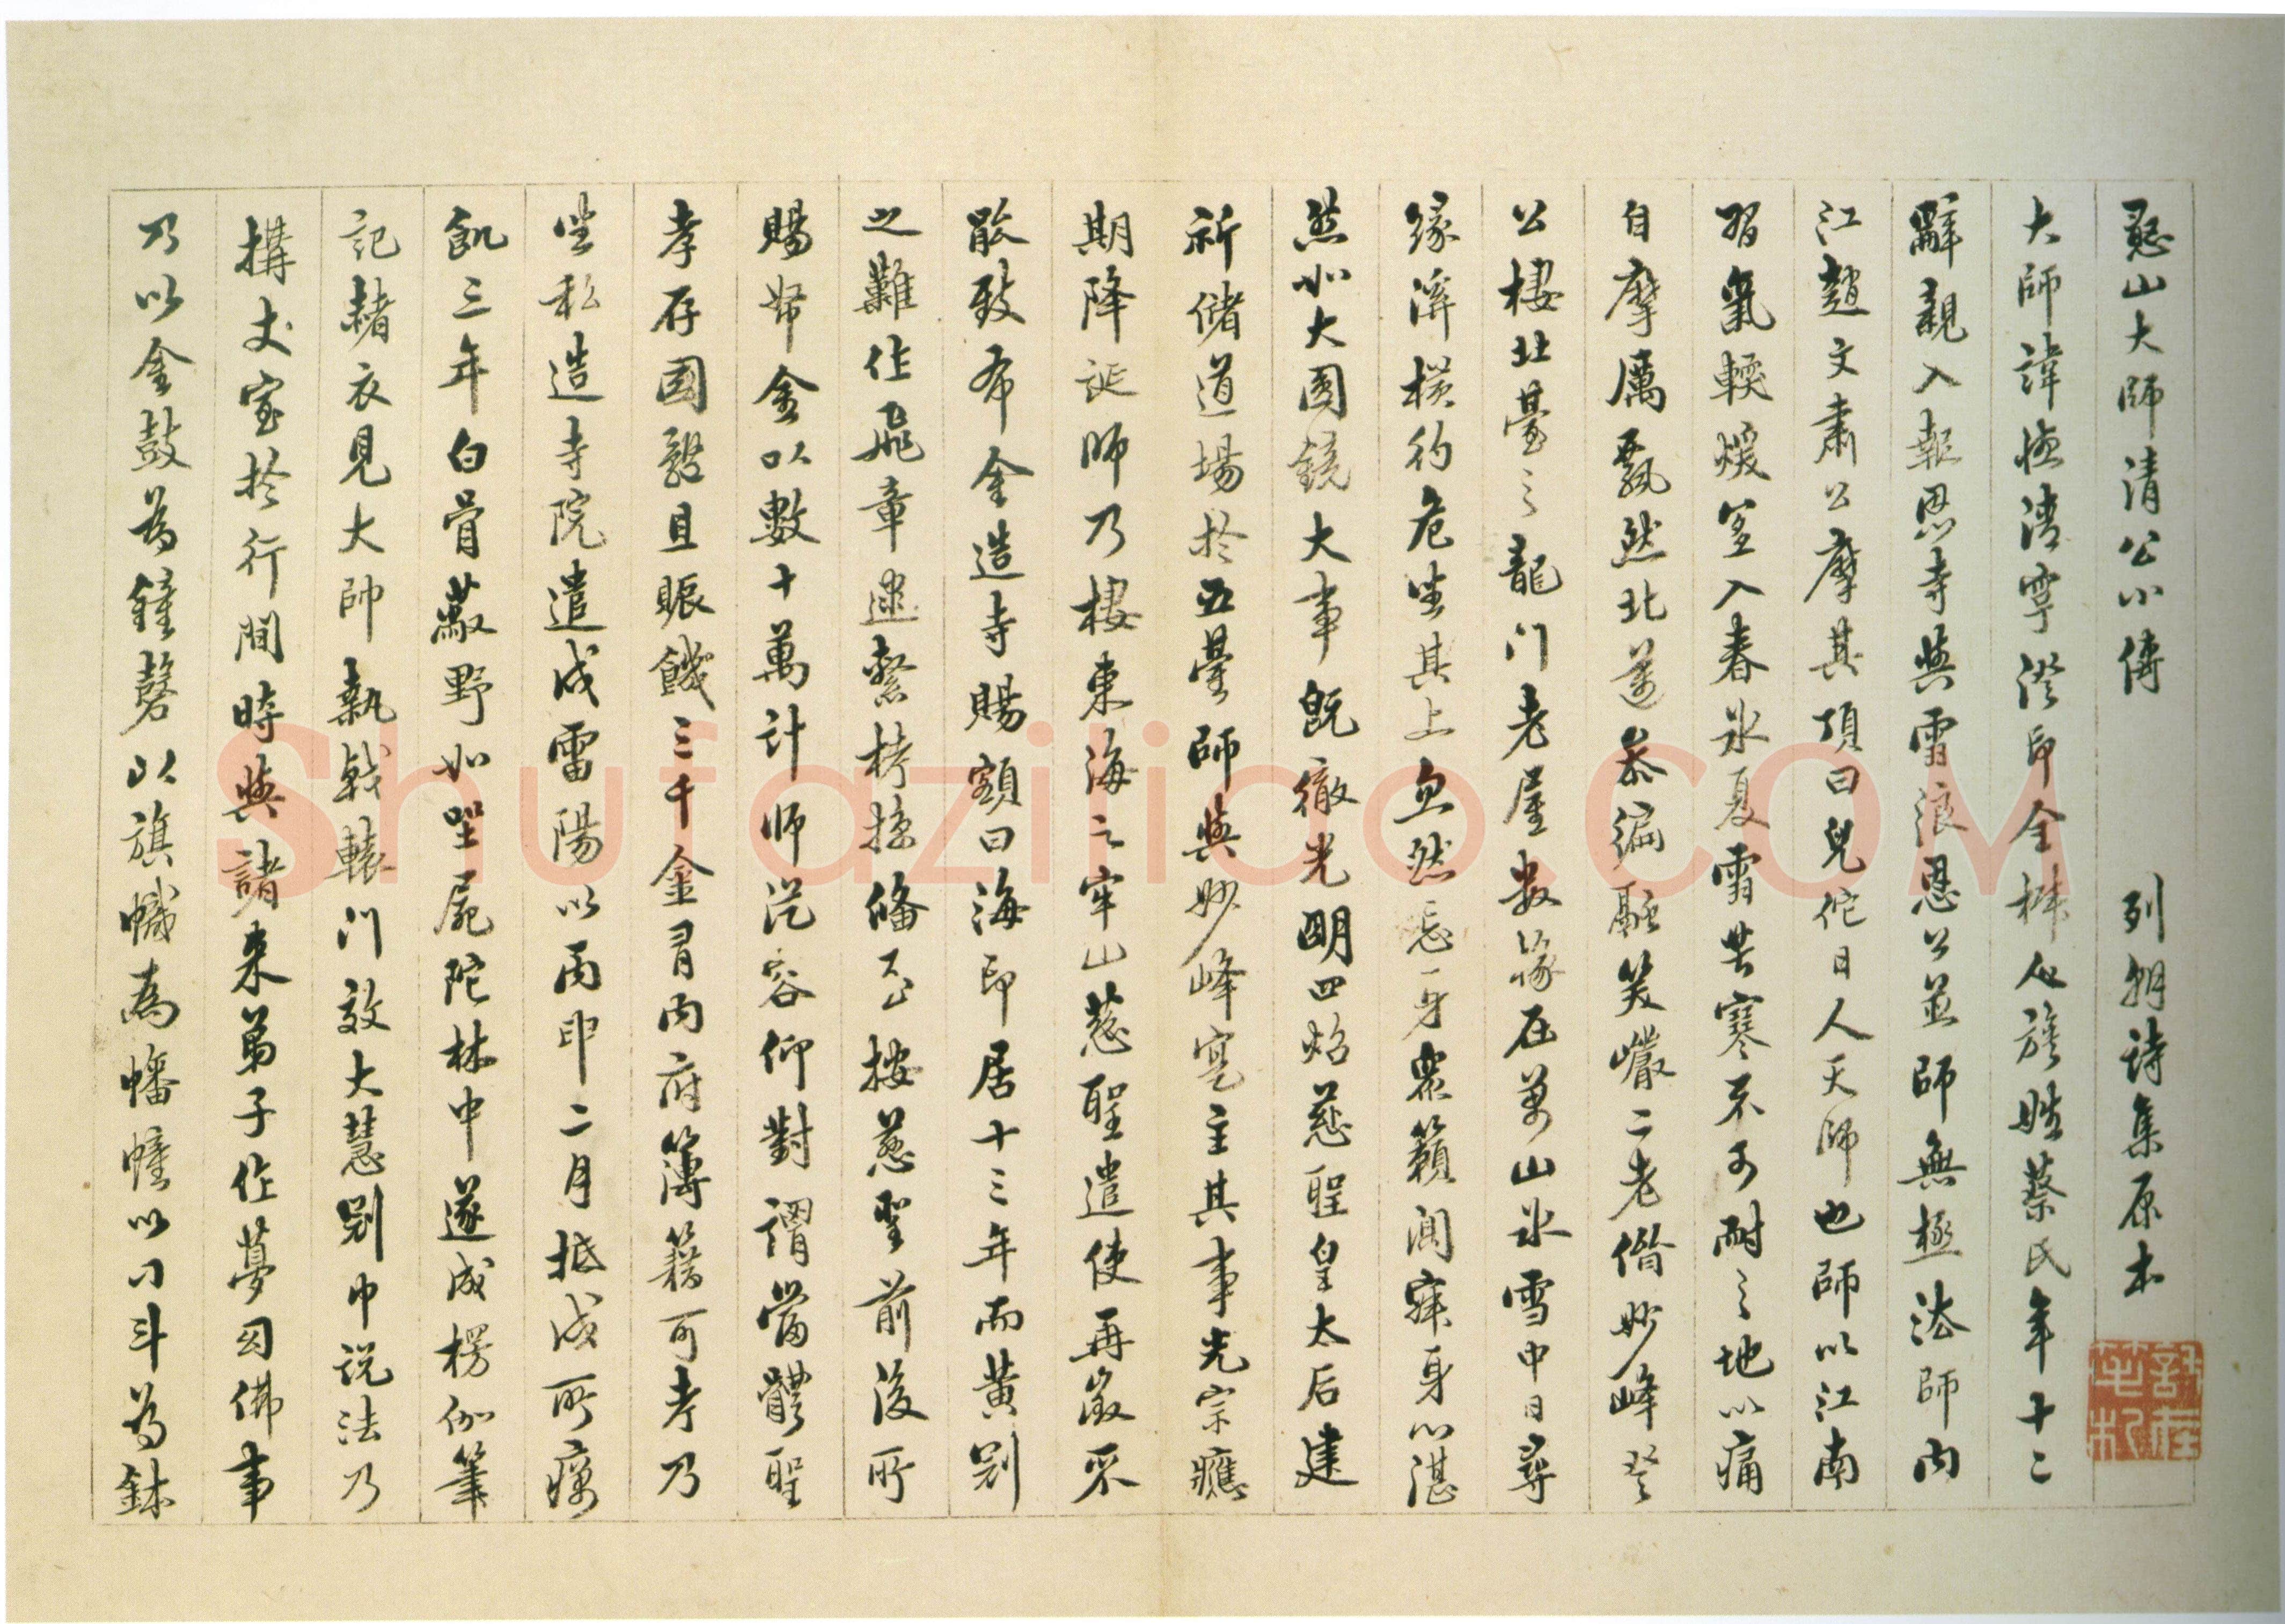 憨山大師清公小傳 列朝詩集原本
大師諱德清字澄印全椒人族姓蔡氏年十二
辭親入報恩寺與雪浪恩公並師無極法師內
江趙文肅公摩其頂曰兒佗日人天師也師以江南
習氣輭煖宜入春冰夏雪苦寒不可耐之地以痛
自摩厲飄然北邁參徧融笑巖二老偕妙峰登
公棲北臺之龍門老屋數椽在萬山冰雪中日尋
緣溪橫彴危坐其上忽然忘身眾籟闃寂身心湛
然如大圓鏡大事既徹光明四炤慈聖皇太后建
祈儲道場於五臺師與妙峰寔主其事光宗應
期降誕師乃棲東海之牢山慈聖遣使再徵不
能致布金造寺賜額曰海印居十三年而黃冠
之難作飛章逮繫拷掠備至按慈聖前後所
賜帑金以數十萬計師從容仰對謂當體聖
孝存國體且賑饑三千金有內府簿籍可考乃
坐私造寺院遣戍雷陽以丙申二月抵戍所癘
飢三年白骨蔽野如坐屍陀林中遂成楞伽筆
記赭衣見大帥執戟轅門效大慧冠巾說法乃
構丈室於行間時與諸來弟子作夢幻佛事
乃以金鼓為鐘磬以旗幟為幡幢以刁斗為鉢
Shufaziliao.com